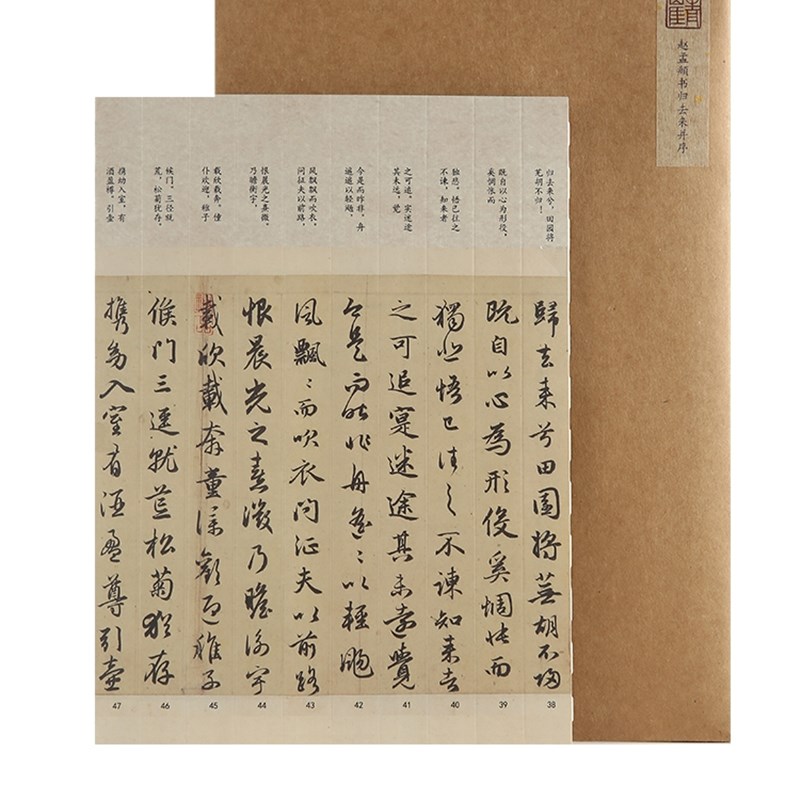 赵孟頫书归去来并序
归去来兮,田园将
芜胡不归!
既自以心为形役,
奚惆怅而
独悲。悟已往之
不谏,知来者
之可追。实迷途
其未远,觉
今是而昨非。舟
遥遥以轻飏,
风飘飘而吹衣。
问征夫以前路,
恨晨光之熹微。
乃瞻衡宇,
载欣载奔。僮
仆欢迎,稚子
候门。三径就
荒,松菊犹存。
携幼入室,有
酒盈樽。引壶
歸去来兮田園将蕪胡不歸
既自以心為形役奚惆悵而
獨悲悟已往之不諫知来者
之可追寔迷途其未遠覺
今是而昨非舟遥〻以輕颺
風飄〻而吹衣問征夫以前路
恨晨光之熹微乃瞻衡宇
載欣載奔童僕歡迎稚子
候門三逕就荒松菊猶存
携幼入室有酒盈尊引壺
38
39
40
41
42
43
44
45
46
47